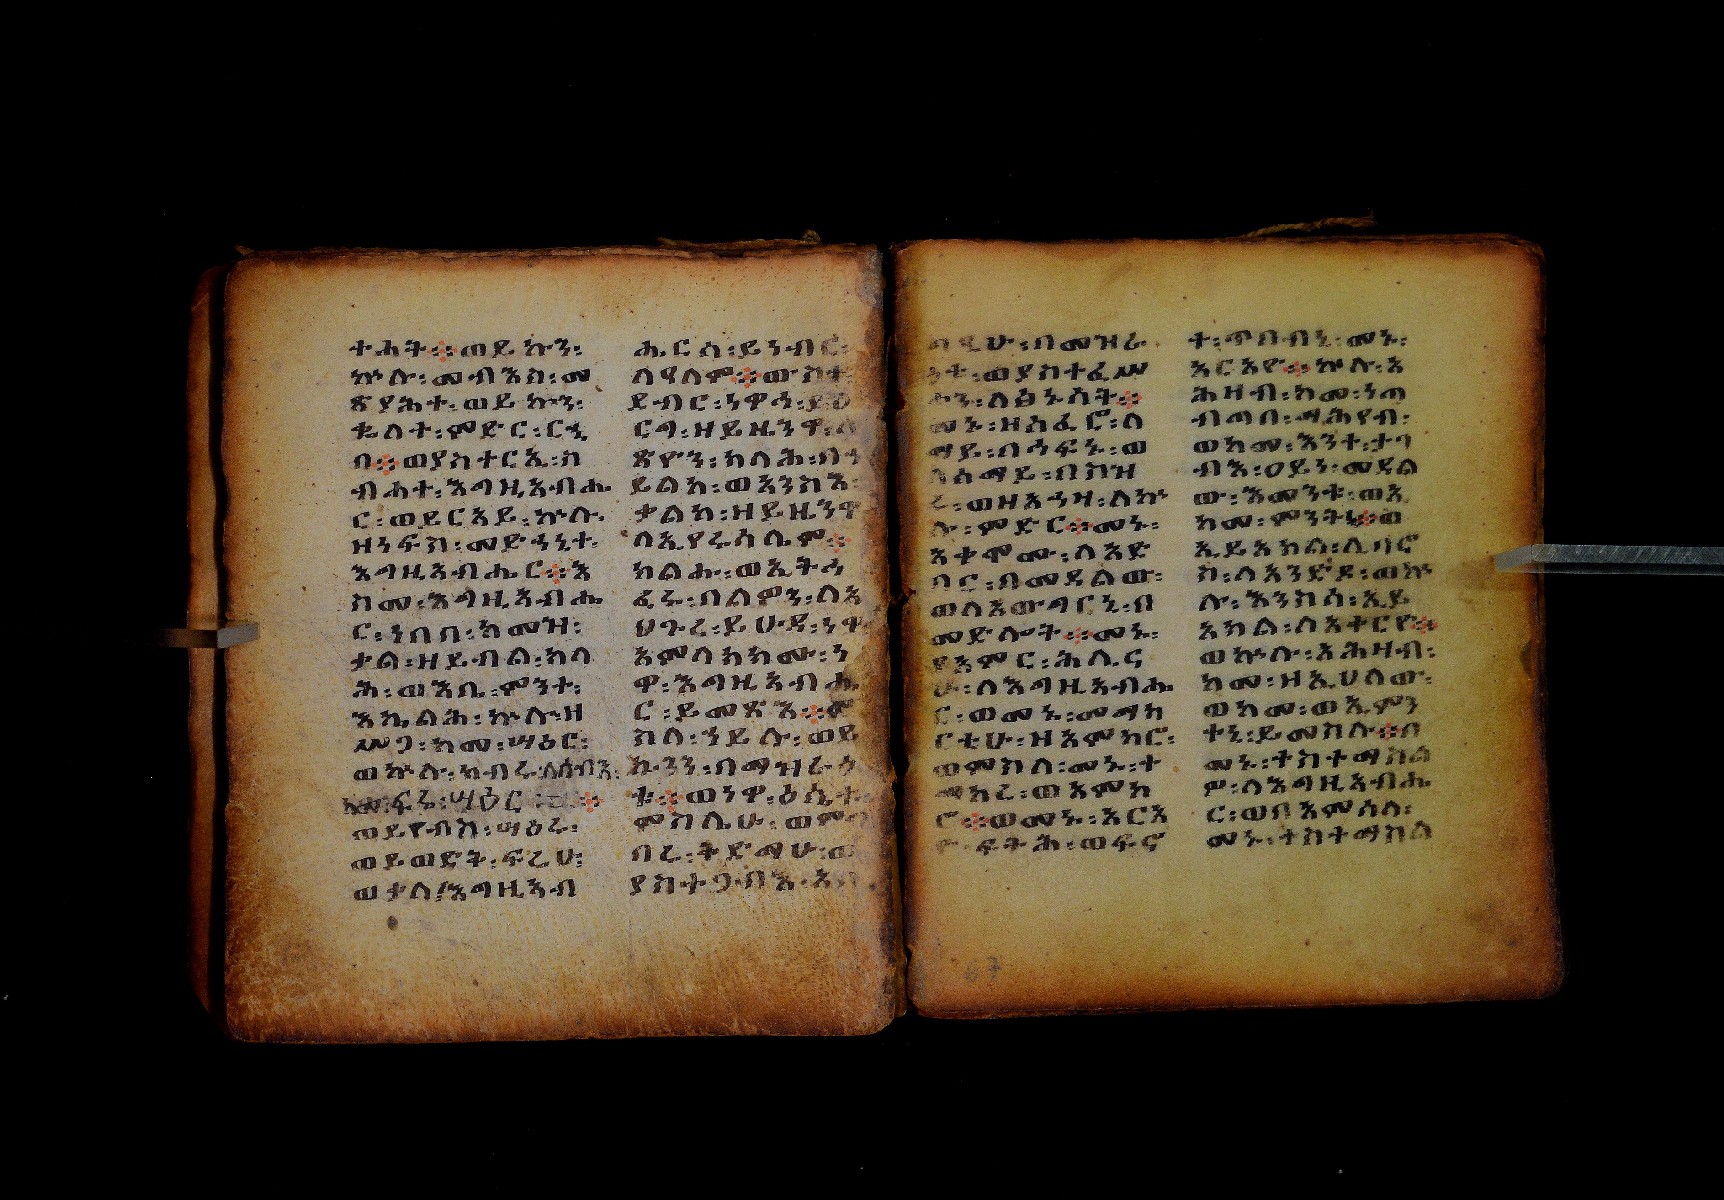 ተሐት። ወይኩን፡
ኵሉ፡ መብእስ፡ መ
ጽያሕተ፡ ወይኩን፡
ቈላተ፡ ምድር፡ ርኂ
በ። ወያስተርኢ፡ ስ
ብሐተ፡ እግዚአብሔ
ር፡ ወይርአይ፡ ኵሉ፡
ዘነፍስ፡ መድኀኒተ፡
እግዚአብሔር። እ
ስመ፡ እግዚአብሔ
ር፡ ነበበ፡ ከመዝ፡
ቃል፡ ዘይብል፡ ከላ
ሕ፡ ወእቤ፡ ምንተ፡
እኬልሕ፡ ኵሉ፡ ዘ
ሥጋ፡ ከመ፡ ሣዕር፡
ወኵሉ፡ ክብረ፡ ለሰብእ፡
ከመ፡ ፍሬ፡ ሣዕር፡ ።
ወይየብስ፡ ሣዕረ፡
ወይወድት፡ ፍሬሁ፡
ወቃለ፡ እግዚአብ
ሔርሰ፡ ይነብር፡
ለዓለም። ውስተ፡
ደብር፡ ነዋኅ፡
ርግ፡ ዘይዜንዋ፡
ጽዮን፡ ከላሕ፡
ይልከ፡ ወአንስእ፡
ቃልከ፡ ዘይዜንዋ
ለኢየሩሳሌም።
ከልሑ፡ ወኢትፍ
ፈሩ፡ በልምን፡ ለአ
ሀጉረ፡ ይሁዳ፡ ነዋ
አምላክክሙ፡ ነ
ዋ፡ እግዚአብሔ
ር፡ ይመጽእ። ም
ስለ፡ ኀይሉ፡ ወይ
ኴንን፡ በማዝራዕ
ቱ። ወነዋ፡ ዕሴተ፡
ምስሌሁ፡ ወምግ
በረ፡ ቅድማሁ፡ ወ
ያስተጋብእ፡ አባ
ባዒሁ፡ በመዝራ
ዕቱ፡ ወያስተፈሥ
ሖን፡ ለፅኑሳት።
መኑ፡ ዘሰፈሮ፡ ለ
ማይ፡ በሕፍኑ፡ ወ
ለሰማይ፡ በስዝ
ረ፡ ወዘአኀዛ፡ ለኵ
ሉ፡ ምድር። መኑ፡
አቀሞሙ፡ ለአድ
ባር፡ በመደልው፡
ወለአውግርኒ፡ በ
መድሎት። መኑ፡
የአምር፡ ሕሊና
ሁ፡ ለእግዚአብሔ
ር፡ ወመኑ፡ መማክ
ርቲሁ፡ ዘአምከሮ፡
ወምስለ፡ መኑ፡ ተ
ማከረ፡ ወአምከ
ሮ። ወመኑ፡ አርአ
ዮ፡ ፍትሕ፡ ወፍኖ
ተ፡ ጥበብኒ፡ መኑ፡
አርአዮ። ኵሉ፡ አ
ሕዛብ፡ ከመ፡ ነጠ
ብጣበ፡ ማሕየብ፡
ወከመ፡ እንተ፡ ታግ
ብእ፡ ዐይነ፡ መደል
ው፡ እመንቱ፡ ወእ
ከመ፡ ምንትኒ። ወ
ኢይአክል፡ ሊባኖ
ስ፡ ለአንድዶ፡ ወኵ
ሉ፡ እንስሳ፡ ኢይ
አክል፡ ለአቀርዮ።
ወኵሉ፡ አሕዛብ፡
ከመ፡ ዘኢሀለው፡
ወከመ፡ ወኢምን
ትኒ፡ ይመስሉ። በ
መኑ፡ ተስተማስል
ዎ፡ ለእግዚአብሔ
ር፡ ወበአምሳለ፡
መኑ፡ ተስተማስል